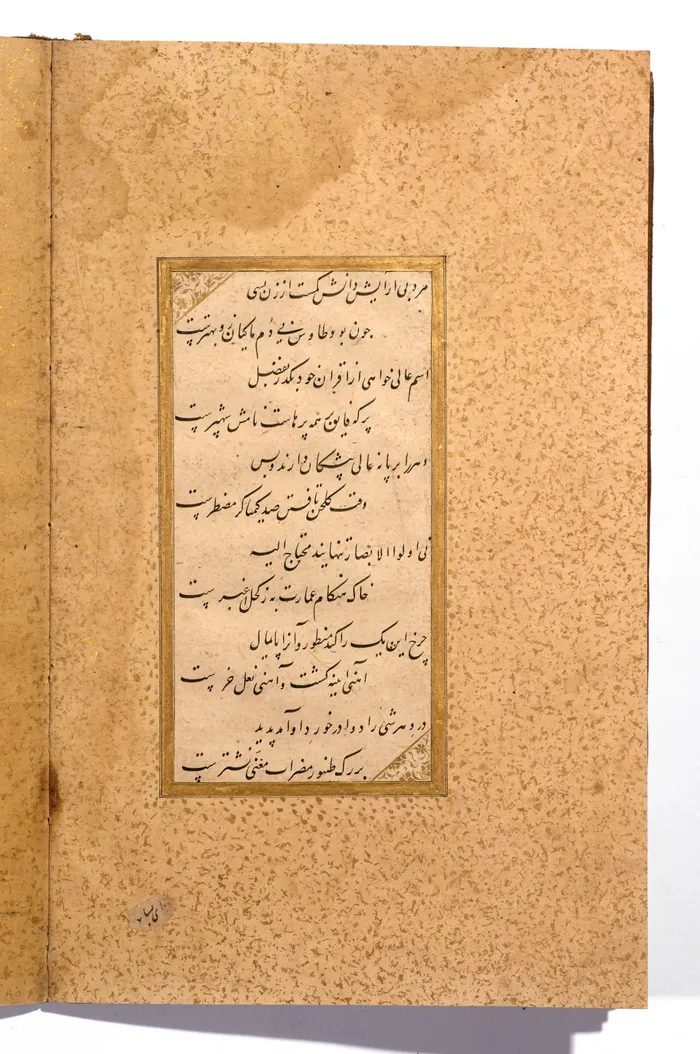 مرد بی آرایش دانش کمست از زن بسی
چون بود طاوس بی دم ماکیان زو بهترست
اسم عالی خواهی از اقران خود بگذر بفضل
پر که فایق بر همه پرهاست نامش شهپرست
و هنرا بر پانه عالی پیشکان دارند و بس
وقت گلخن تافتن صد کیمیاگر مضطرست
نی اولوا الابصار تنهایند محتاج الیه
خاک هنگام عمارت به ز کحل اغبرست
چرخ این یک را کند منظور و آنرا پایمال
آهنی آیینه گشت و آهنی نعل خرست
درد هر شی را دوا در خورد او آمد پدید
بر رگ طنبور مضراب مغنی نشترست